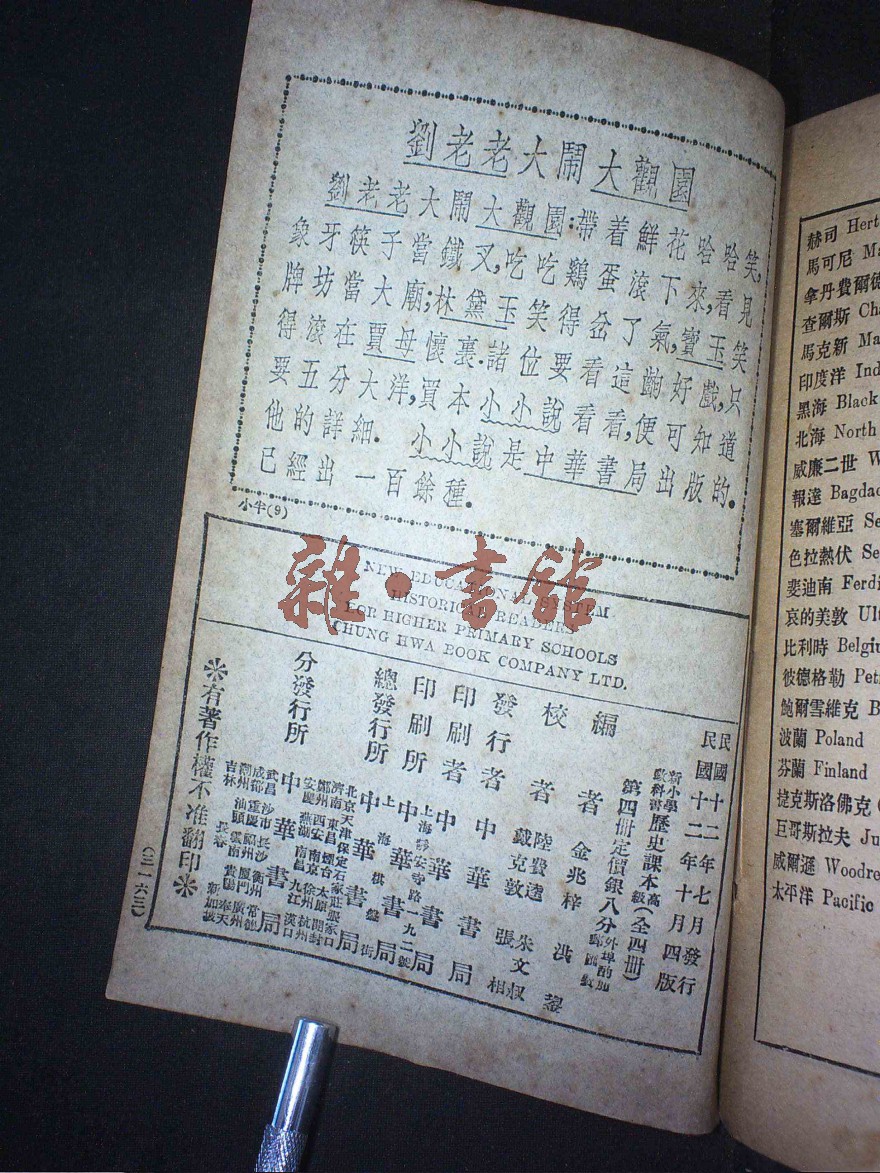 劉老老大鬧大觀園
劉老老大鬧大觀園:帶着鮮花哈哈笑,
象牙筷子當鐵叉,吃吃鷄蛋滾下來,看見
牌坊當大廟;林黛玉笑得岔了氣,寶玉笑
得滾在賈母懷裏.諸位要看這齣好戲,只
要五分大洋,買本小小說看看,便可知道
他的詳細. 小小說是中華書局出版的.
已經出一百餘種.
小半(9)
雜·書館
NEW EDUCATIONAL SYSTEM
HISTORICAL READERS
FOR HIGHER PRIMARY SCHOOLS
CHUNG HWA BOOK COMPANY LTD.
民國十二年七月發行
民國十二年十月四版
新小學教科書歷史課本高級(全四冊)
第四冊定價銀八分
編者 金兆梓
校者 陸費逵 戴克敦 朱文叔 張相
發行者 中華書局
印刷者 中華書局
印刷所 上海靜安寺路一九二號 中華書局
總發行所 上海棋盤街 中華書局
分發行所 中華書局
北京 天津 保定 石家莊 張家口
濟南 東昌 煙台 太原 開封
鄭州 西安 南京 徐州 杭州
安慶 蕪湖 南昌 九江 漢口
武昌 沙市 長沙 衡州 常德
成都 重慶 廈門 廣州
潮州 汕頭 雲南 貴陽 奉天
吉林 長春 新加坡
有著作權不准翻印
(三一六三)
赫司 Hert
馬可尼 Ma
拿丹費爾德
查爾斯 Cha
馬克新 Ma
印度洋 Ind
黑海 Black
北海 North
威廉二世 W
報達 Bagdad
塞爾維亞 Se
色拉熱伏 Se
斐迪南 Ferdi
哀的美敦 Ult
比利時 Belgiu
彼德格勒 Pet
鮑爾雪維克 B
波蘭 Poland
芬蘭 Finland
捷克斯洛佛克 (
巨哥斯拉夫 Ju
威爾遜 Woodro
太平洋 Pacific